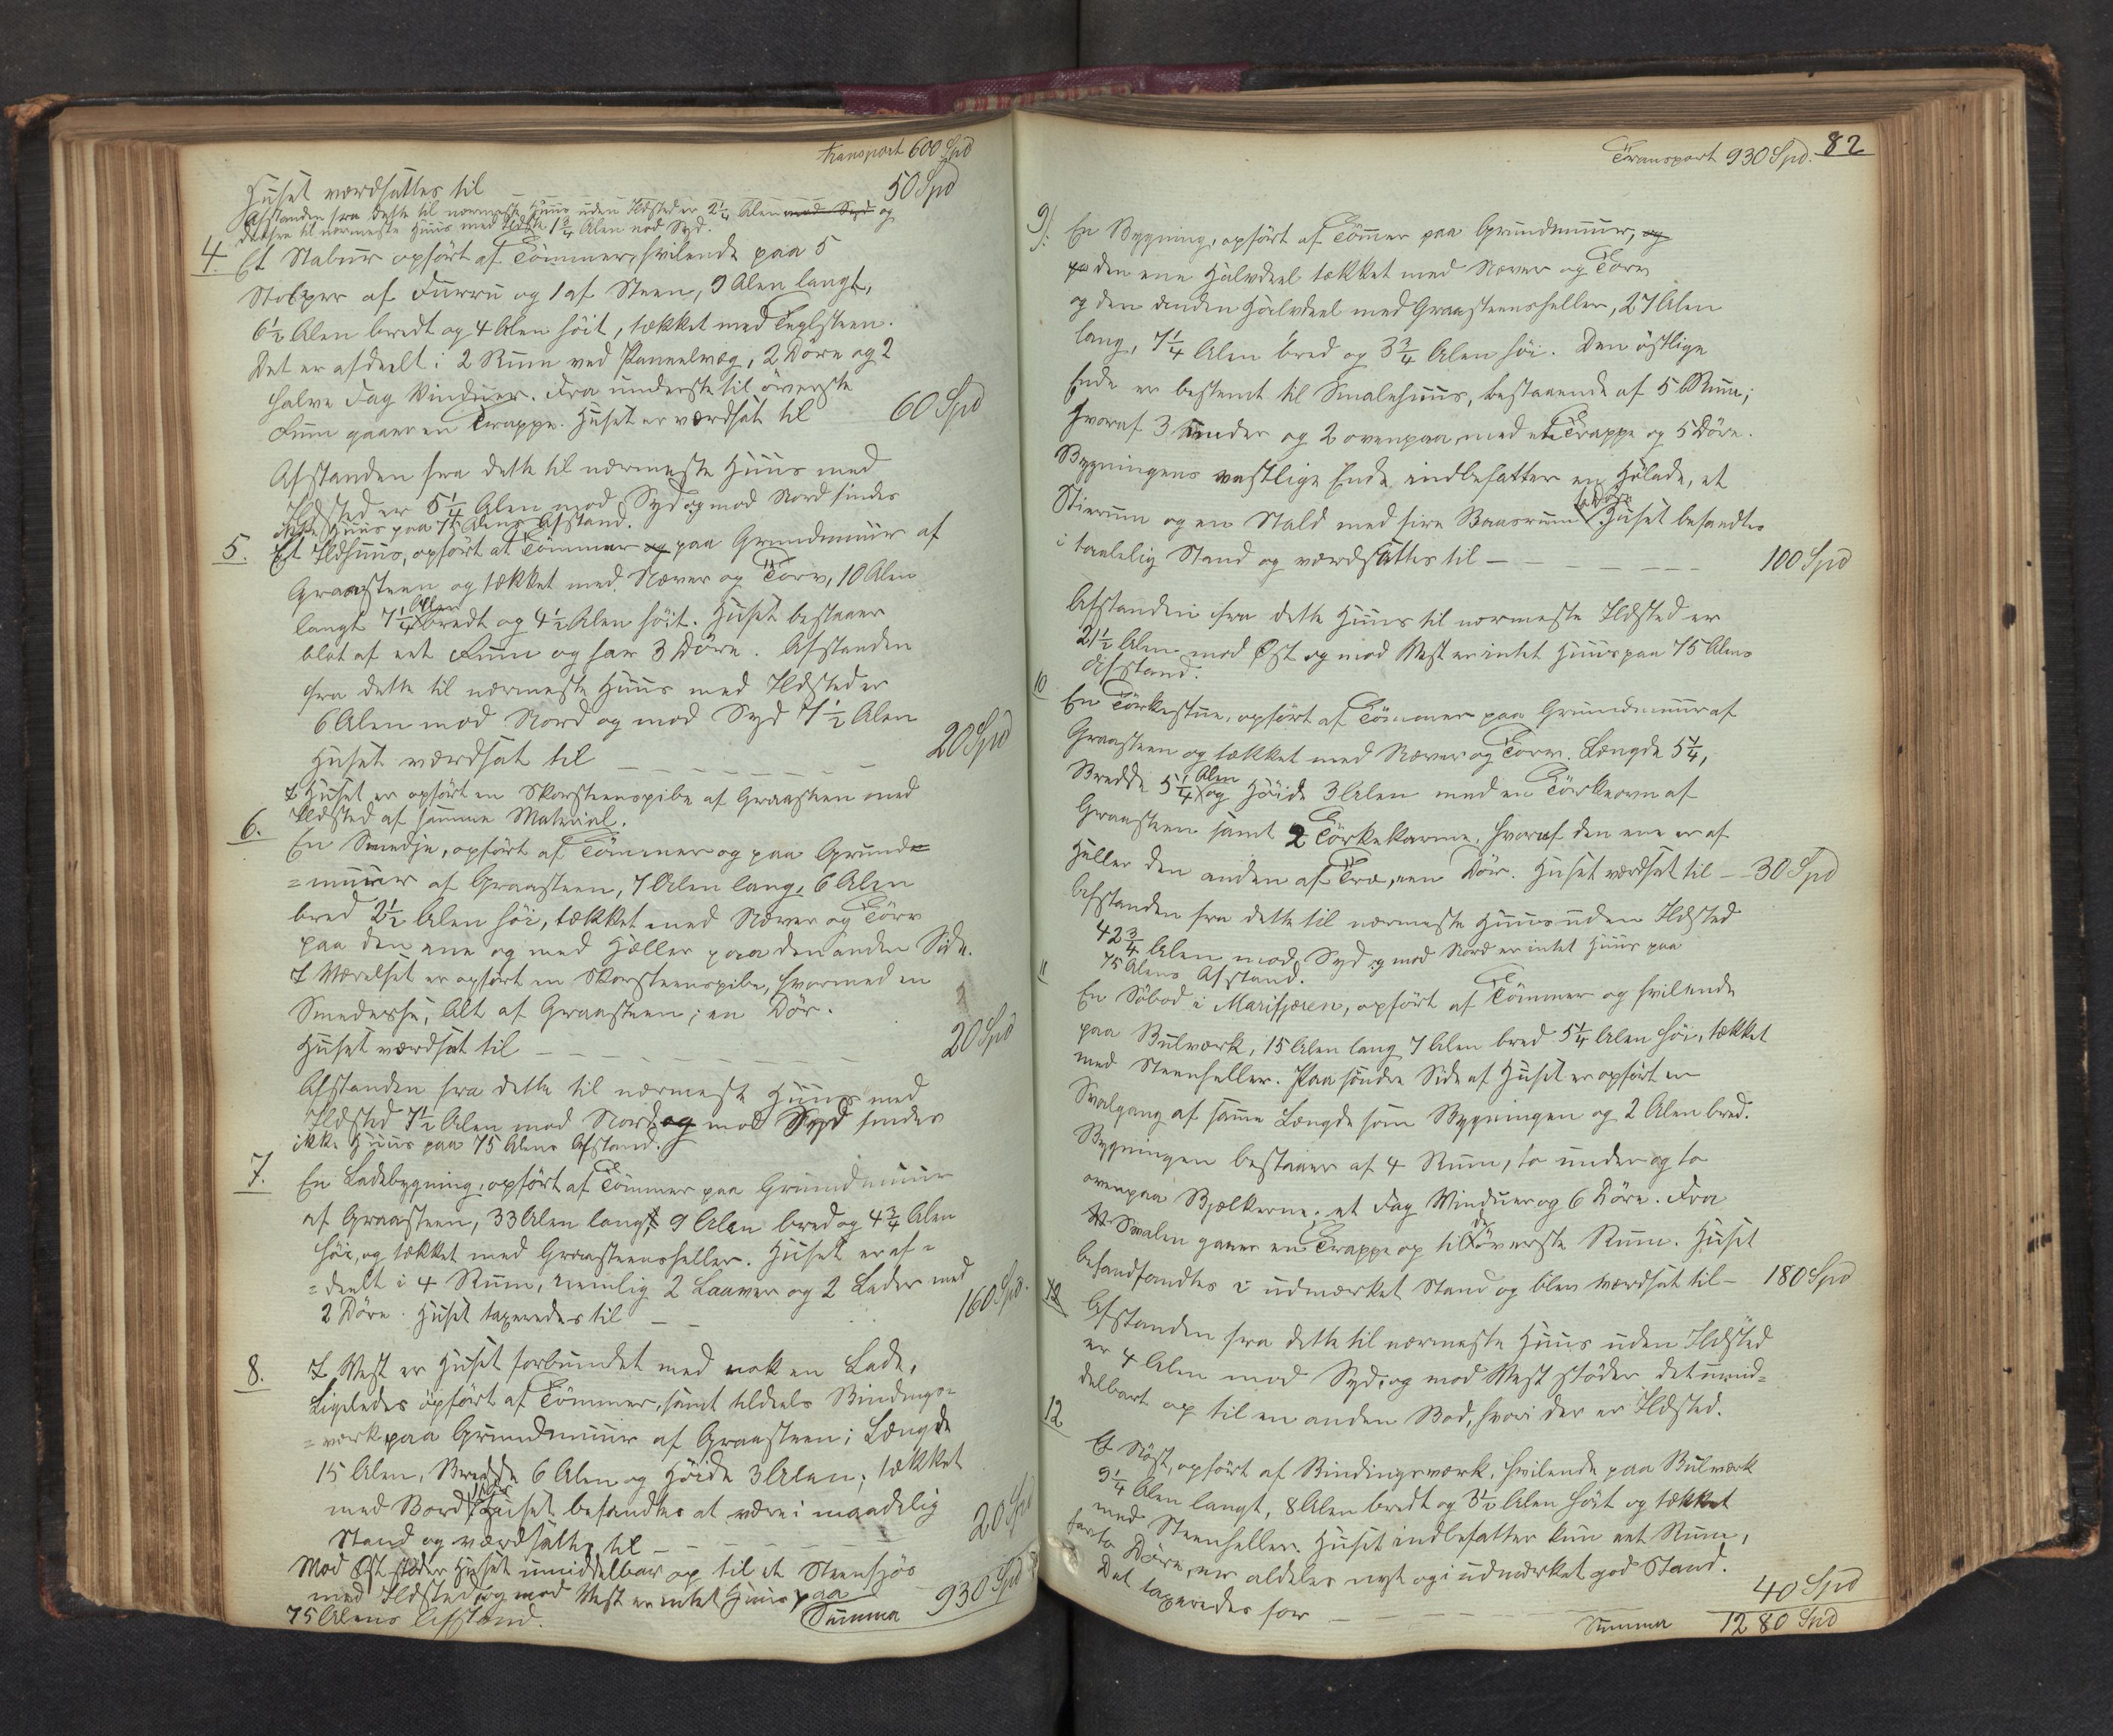 Transport 600 Spd
Huset værdsattes til 50 Spd
Afstanden fra dette til nærmeste Huus uden Ildsted er 2 1/4 Alen mod Syd og
dette til nærmeste Huus med Ildsted 1 3/4 Alen mod Syd.
4. Et Stabuur opført af Tömmer, hvilende paa 5
Stolper af Furru og 1 af Steen, 9 Alen langt,
6 1/2 Alen bredt og 4 Alen höit, tækket med Teglsteen.
Det er afdeelt i 2 Rum ved Paneelvæg, 2 Döre og 2
halve Fag Vinduer. Fra underste til överste
Rum gaaer en Trappe. Huset er værdsat til 60 Spd
Afstanden fra dette til nærmeste Huus med
Ildsted er 5 1/4 Alen mod Syd og mod Nord findes
ikke Huus paa 75 Alens Afstand.
5. Et Ildhuus, opfört af Tömmer og paa Grundmuur af
Graasteen og tækket med Næver og Torv, 10 Alen
langt 7 1/4 Alen bredt og 4 1/2 Alen höit. Huset bestaaer
blot af eet Rum og har 3 Döre. Afstanden
fra dette til nærmeste Huus med Ildsted er
6 Alen mod Nord og mod Syd 7 1/2 Alen
Huset værdsat til 20 Spd
I Huset er opfört en Skorsteenspibe af Graasteen med
Ildsted af samme Material.
6. En Smedje, opfört af Tömmer og paa Grund=
=muur af Graasteen, 7 Alen lang, 6 Alen
bred 2 1/2 Alen höi, tækket med Næver og Törv
paa den ene og med Heller paa den anden Side.
I Værelset er opfört en Skorsteenspibe, hvormed en
Smedesse, Alt af Graasteen; en Dör.
Huset værdsat til 20 Spd
Afstanden fra dette til nærmeste Huus med
Ildsted 7 1/2 Alen mod Nord og mod Syd findes
ikke Huus paa 75 Alens Afstand.
7. En Ladebygning, opfört af Tömmer paa Grundmuur
af Graasteen, 33 Alen lang 9 Alen bred og 4 3/4 Alen
höi, og tækket med Graasteensheller. Huset er af=
=deelt i 4 Rum, nemlig 2 Laaver og 2 Lader med
2 Döre. Huset taxeredes til 160 Spd.
8. I Vest er Huset forbundet med nok en Lade,
Ligeledes opfört af Tömmer, samt tildeels Bindings=
=værk paa Grundmuur af Graasteen; Længde
15 Alen, Bredde 6 Alen og Höide 3 Alen; tækket
med Bord. Huset befandtes at være i maadelig
Stand og værdsattes til 20 Spd
Mod Öst stöder Huset umiddelbar op til et
med Ildsted og mod Vest er intet Huus paa
75 Alens Afstand. Summa 930 Spd
Transport 930 Spd. 82
9/: En Bygning, opfört af Tömmer paa Grundmuur, og
paa den ene Halvdeel tækket med Næver og Torv
og den anden Halvdeel med Graasteensheller, 27 Alen
lang, 7 1/4 Alen bred og 3 3/4 Alen höi. Den östlige
Ende er bestemt til Smalehuus, bestaaende af 5 Rum;
hvoraf 3 under og 2 ovenpaa, med en Trappe og 5 Döre.
Bygningens vestlige Ende indbefatter en Hölade, et
Stierum og en Stald med fire Baasrum. Huset befandtes
i taalelig Stand og værdsattes til 100 Spd
Afstanden fra dette Huus til nærmeste Ildsted er
21 1/2 Alen mod Öst og mod Vest er intet Huus paa 75 Alens
Afstand.
10 En Törkestue, opfört af Tömmer paa Grundmuur af
Graasteen og tækket med Næver og Torv. Længde 5 1/4,
Bredde 5 1/4 Alen og Höide 3 Alen med en Törkeovn af
Graasteen samt 2 Törkekarme, hvoraf den ene er af
Heller den anden af Træ, een Dör. Huset værdsat til 30 Spd
Afstanden fra dette til nærmeste Huus uden Ildsted
42 3/4 Alen mod Syd og mod Nord er intet Huus paa
75 Alens Afstand.
11 En Söbod i Marifjæren, opfört af Tömmer og hvilende
paa Bulværk, 15 Alen lang 7 Alen bred 5 1/4 Alen höi, tækket
med Steenheller. Paa söndre Side af Huset er opfört en
Svalgang af samme Længde som Bygningen og 2 Alen bred.
Bygningen bestaaer af 4 Rum, to under og to
ovenpaa Bjælkerne; et Fag Vinduer og 6 Döre. Fra
Svalen gaaer en Trappe op til de överste Rum. Huset
befandtandtes i udmærket Stand og blev værdsat til 180 Spd
12 Afstanden fra dette til nærmeste Huus uden Ildsted
er 4 Alen mod Syd, og mod Vest stöder det umid=
delbart op til en anden Bod, hvori der er Ildsted.
12 Et Nöst, opfört af Bindingsværk, hvilende paa Bulværk
9 1/4 Alen langt, 8 Alen bredt og 3 1/2 Alen höit og tækket
med Steenheller. Huset indbefatter kun eet Rum,
har to Döre, er aldeles nyt og i udmærket god Stand.
Det taxeredes for 40 Spd
Summa 1280 Spd